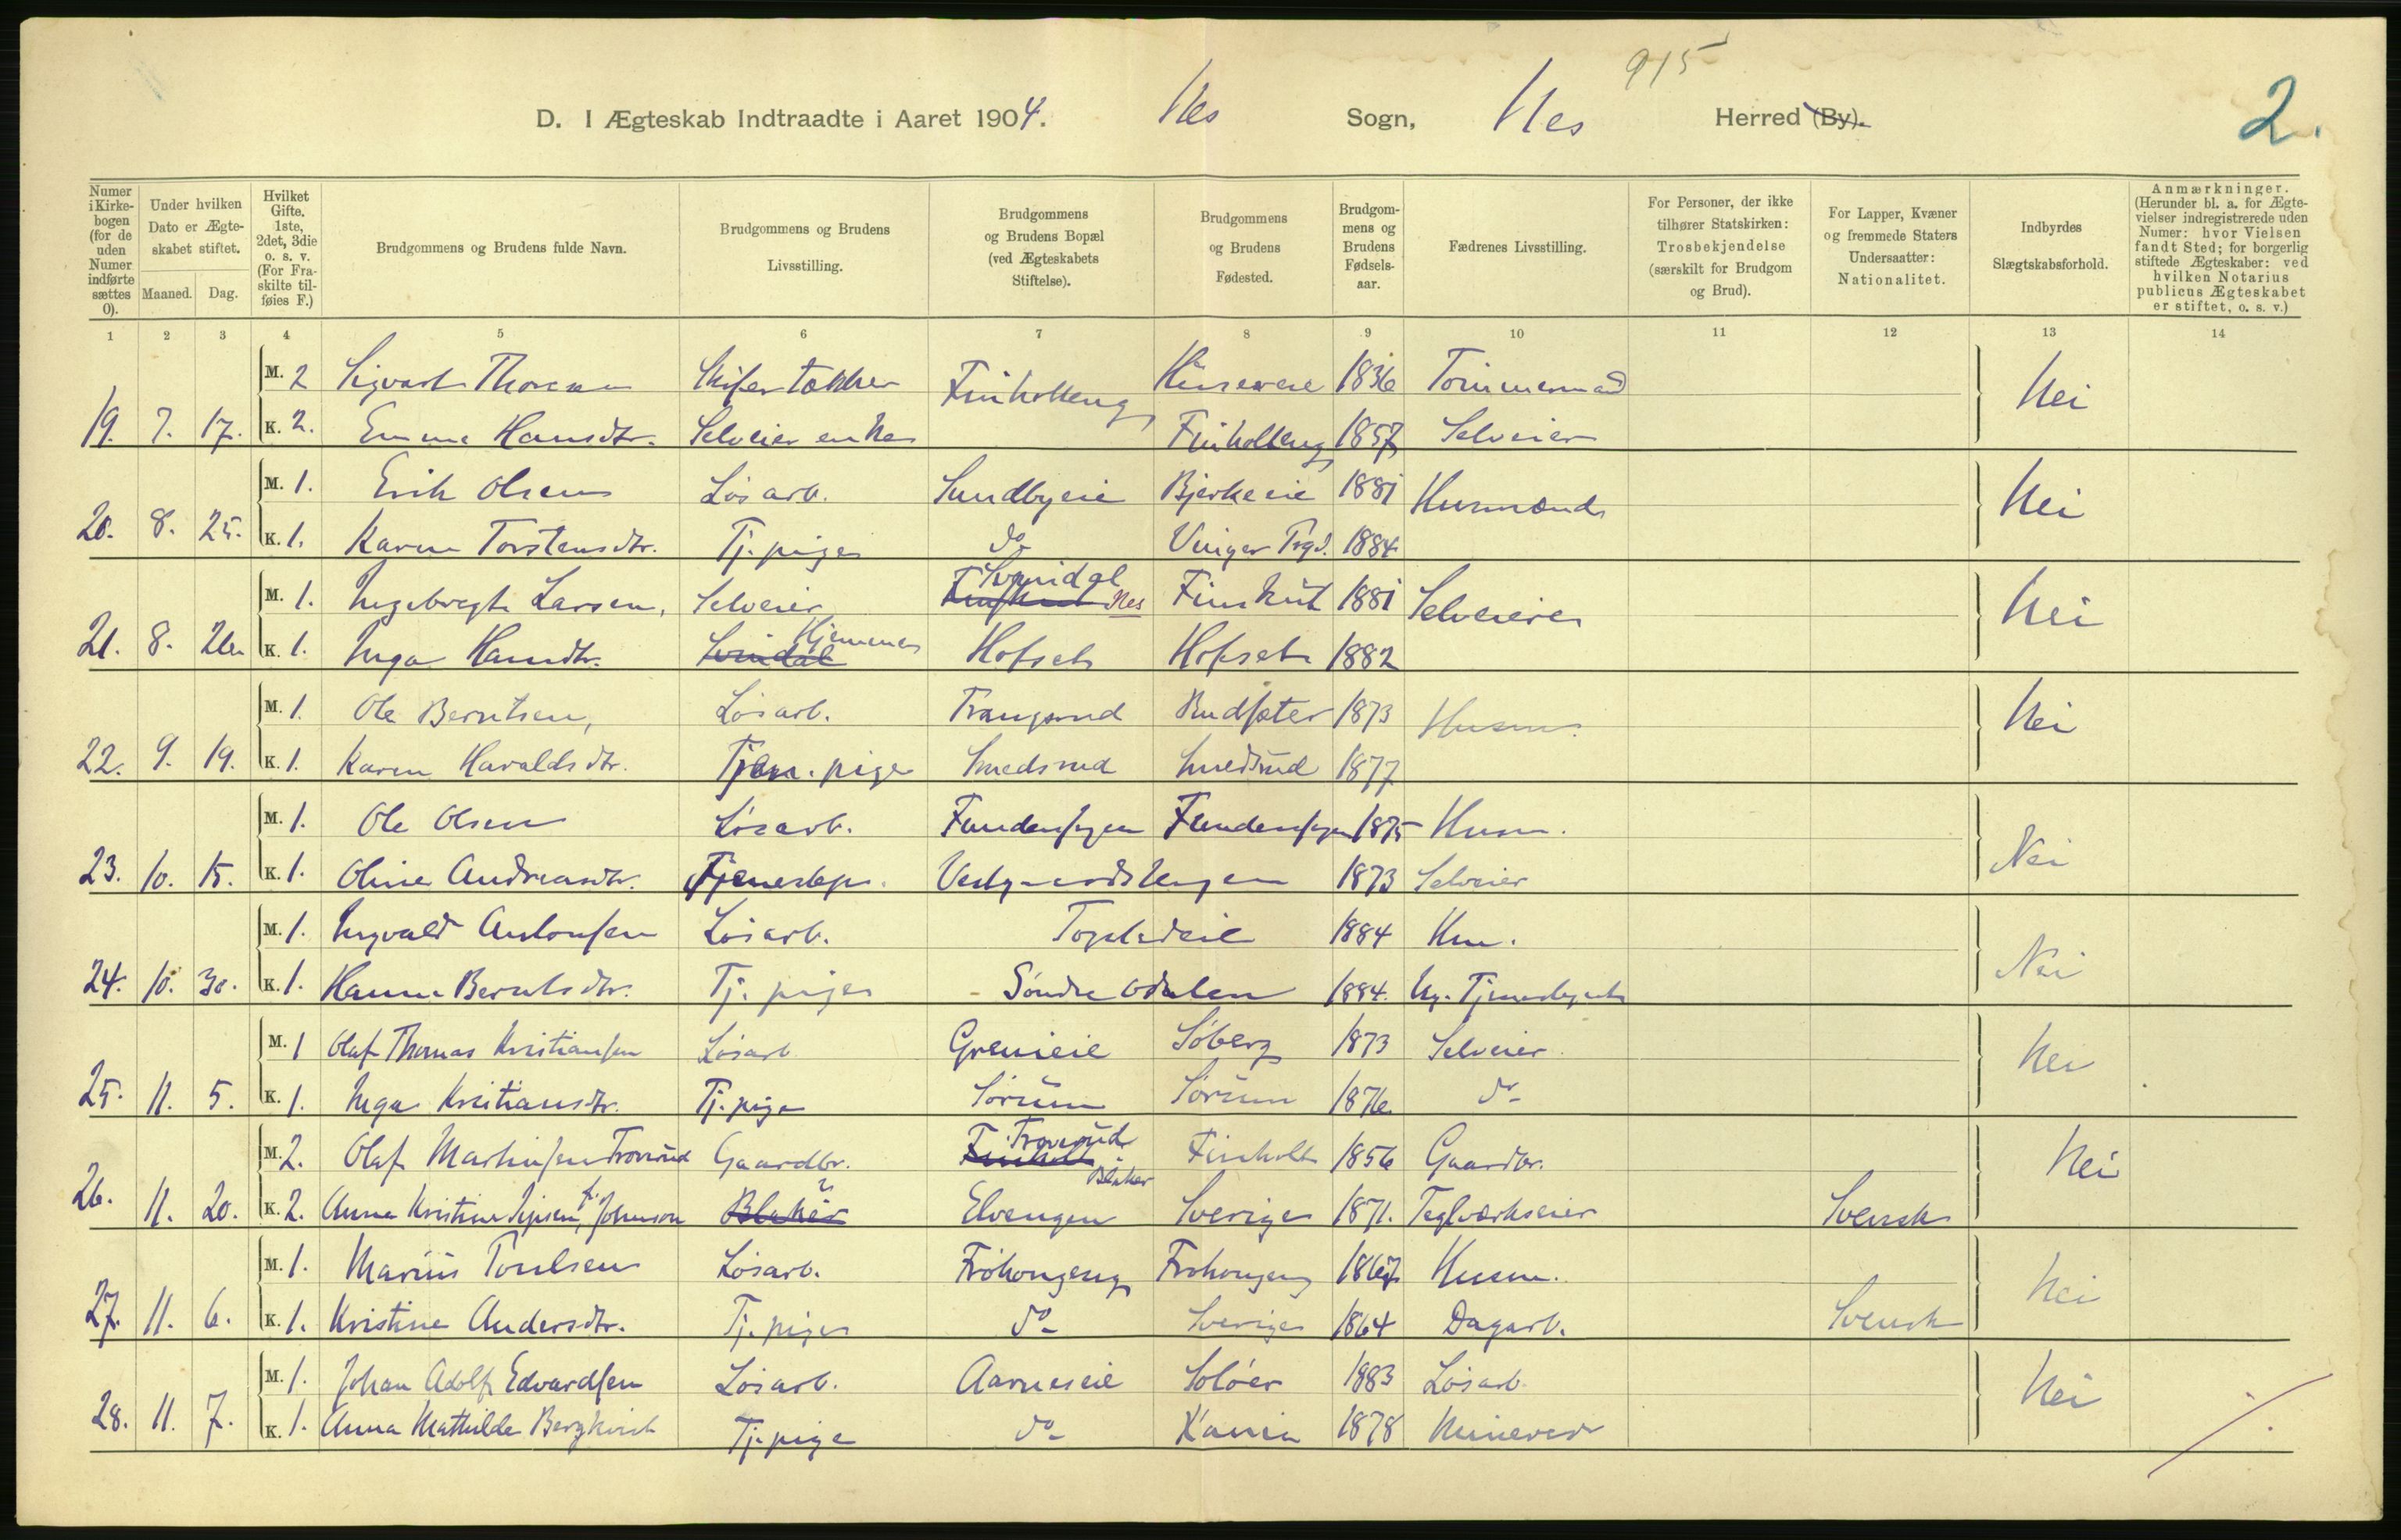 915
D. I Ægteskab Indtraadte i Aaret 1904. Nes Sogn, Nes Herred (By). 2.
Numer i Kirkebogen (for de uden Numer indførte sættes 0).
Under hvilken Dato er Ægteskabet stiftet.
Maaned. Dag.
Hvilket Gifte. 1ste, 2det, 3die o. s. v. (For Fraskilte tilføies F.)
Brudgommens og Brudens fulde Navn.
Brudgommens og Brudens Livsstilling.
Brudgommens og Brudens Bopæl (ved Ægteskabets Stiftelse).
Brudgommens og Brudens Fødested.
Brudgommens og Brudens Fødselsaar.
Fædrenes Livsstilling.
For Personer, der ikke tilhører Statskirken: Trosbekjendelse (særskilt for Brudgom og Brud).
For Lapper, Kvæner og fremmede Staters Undersaatter: Nationalitet.
Indbyrdes Slægtskabsforhold.
Anmærkninger. (Herunder bl. a. for Ægtevielser indregistrerede uden Numer: hvor Vielsen fandt Sted; for borgerlig stiftede Ægteskaber: ved hvilken Notarius publicus Ægteskabet er stiftet, o. s. v.)
1 2 3 4 5 6 7 8 9 10 11 12 13 14
M. 2 Sigvart Skifertækker Finholteng 1836 Nei
19. 7. 17. K. 2. Emma Hansdtr. Selveierenke Finholteng 1857 Selveier
M. 1. Erik Olsen Løsarb. Sundbyeie Bjerkeeie 1881 Husmænd Nei
20. 8. 25. K. 1. Karen Torstensdtr. Tj. pige do Vinger Prgd. 1884
M. 1. Ingebregt Larsen, Selveier Svindal Nes 1881 Selveiere Nei
21. 8. K. 1. Inga Hansdtr. Svindal Hjemme Hofset Hofset 1882
M. 1. Ole Berntsen, Løsarb. Rudsæter 1873 Husm. Nei
22. 9. 19. K. 1. Karen Haraldsdtr. Tjen. pige Smedsrud Smedsrud 1877
M. 1. Ole Olsen Løsarb. Fundenhagen Fundenhagen 1875 Husm. Nei
23. 10. 15. K. 1. Oline Andreasdtr. 1873 Selveier
M. 1. Ingvald Antonsen Løsarb. 1884 Hm. Nei
24. 10. 30. K. 1. Hanna Berntsdtr. Tj. pige Søndre Odalen 1884.
M. 1 Olaf Thomas Kristiansen Løsarb. Grenieie Søberg 1873 Selveier Nei
25. 11. 5. K. 1. Inga Kristiansdtr. Tj. pige Sørum Sørum 1876 do
M. 2. Olaf Martinsen Troverud Gaardbr. Finholt Troverud Blaker Finholt 1856 Gaardbr. Nei
26. 11. 20. K. 2. Anna Kristine f. Johnson Blaker Elvengen Sverige 1871. Teglværkseier Svensk
M. 1. Marius Løsarb. Frøhougeng Frøhougeng 1867 Husm. Nei
27. 11. 6. K. 1. Kristine Andersdtr. Tj. pige do Sverige 1864 Dagarb. Svensk
M. 1. Johan Adolf Edvardsen Løsarb. Aarneseie Soløer 1883 Løsarb. Nei
28. 11. 7. K. 1. Anna Mathilde Bergkvist Tj. pige do X'ania 1878 Minerer